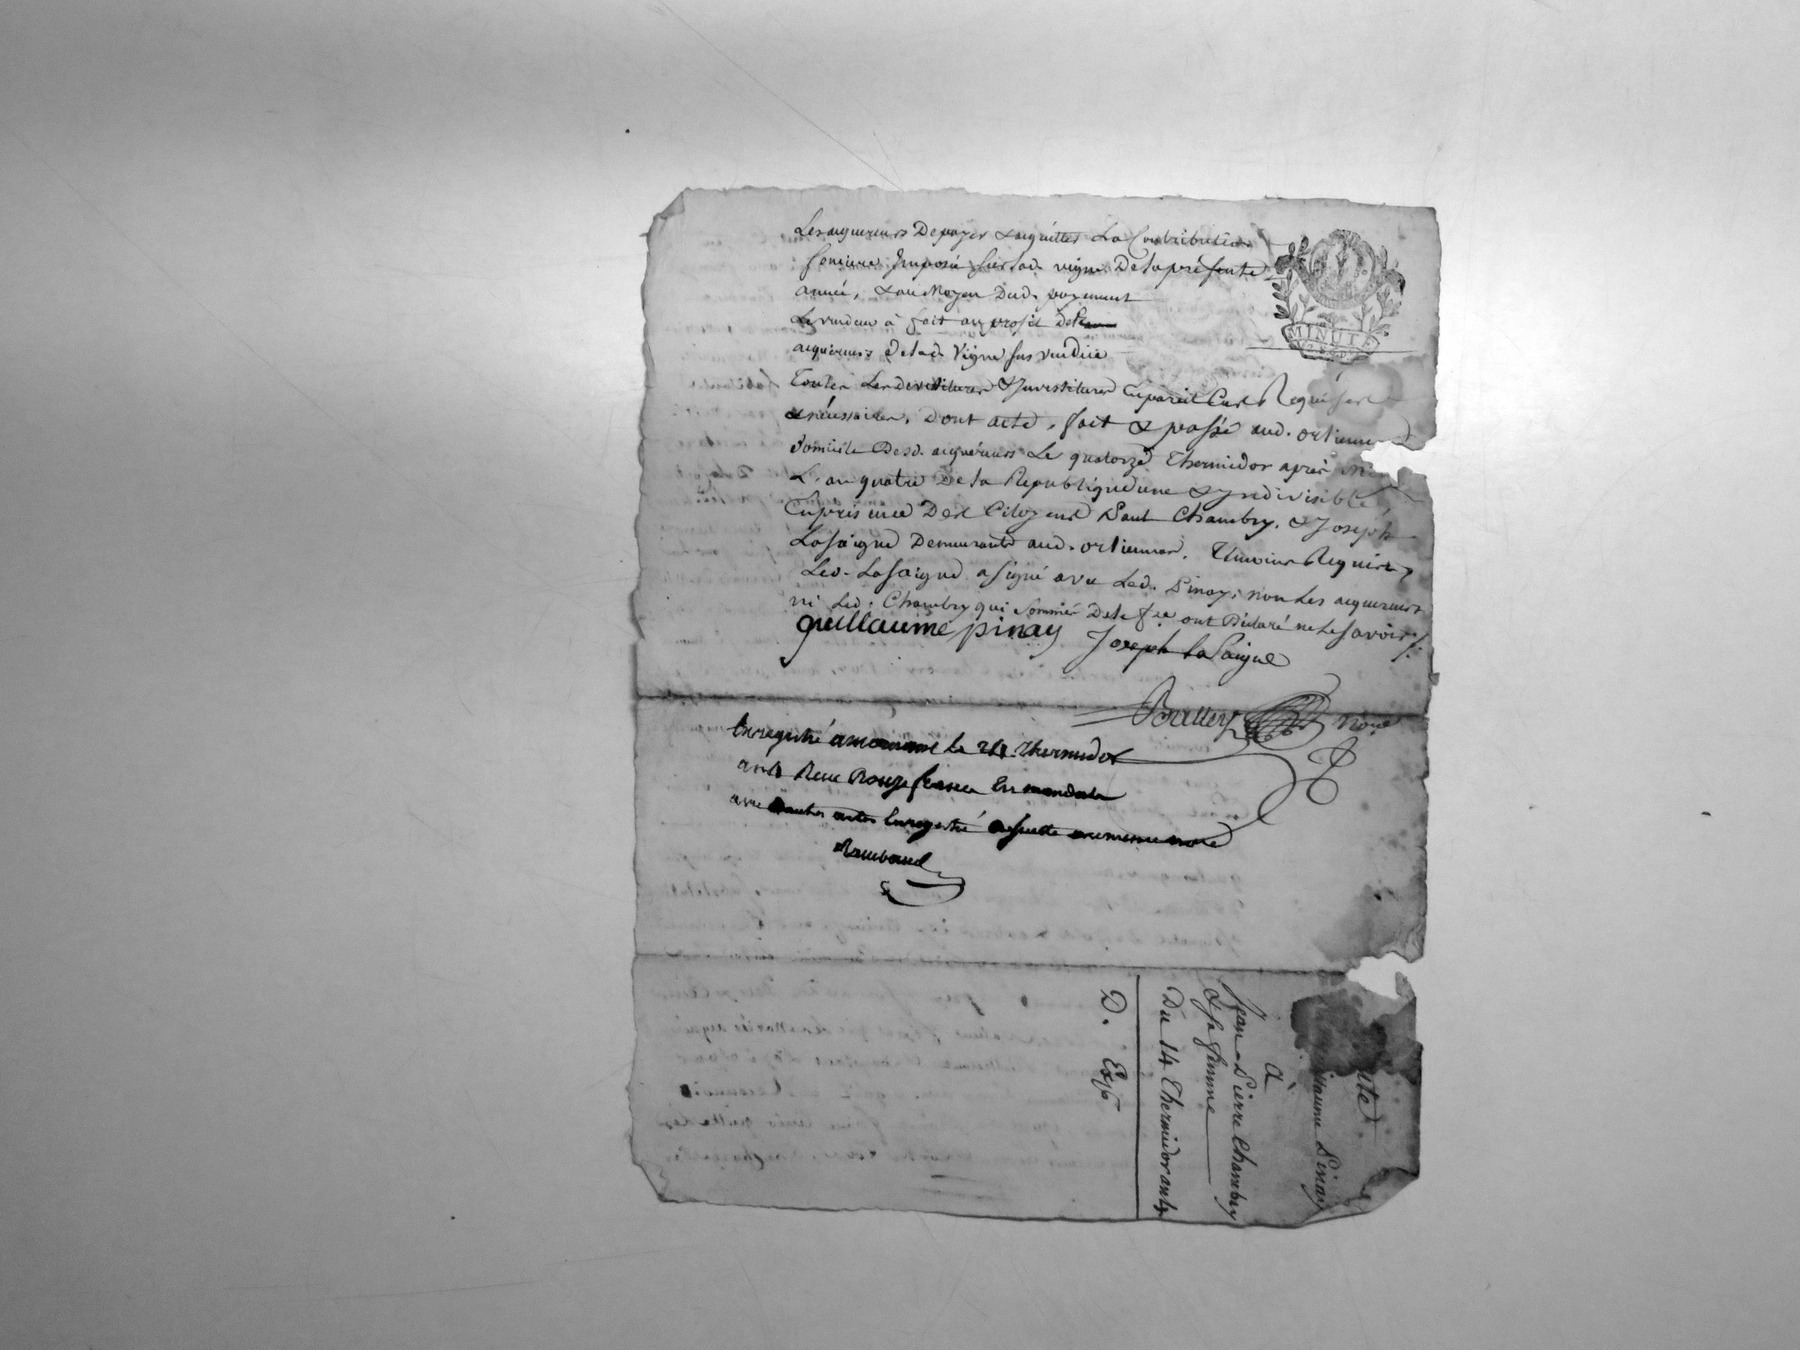 Les acquereurs De payer & acquitter La Contribution
fonciere Imposée sur lad. vigne De la présente
année, & au Moyen Dud. payement
Le vendeur à fait au profit des
acquereurs de lad. Vigne sus vendüe
Toutes Les devestitures & Investitures En pareil Cas Requises
& nécessaires, Dont acte, fait & passé aud.
domicile Desd. acquéreurs Le quatorze Thermidor après
L'an quatre De la Republique une & yndivisible,
En presence Des Citoyens Paul Chambry, & Joseph
Lasaigne Demeurants aud. Témoins Requis,
Led. Lasaigne a signé avec Led. Pinay, non Les acquereurs
ni Led. Chambry qui Sommés De le fre ont Déclaré ne Le savoir ./.
guillaume pinay Joseph laSaigne
MINUTE
Enregistré le 24 Thermidor
an 4 Reçu francs En mandats
avec autres actes Enregistré
Raimbaud
guillaume Pinay
à
Jean-Pierre Chambry
& Sa femme
Du 14 Thermidor an 4
D. Exp